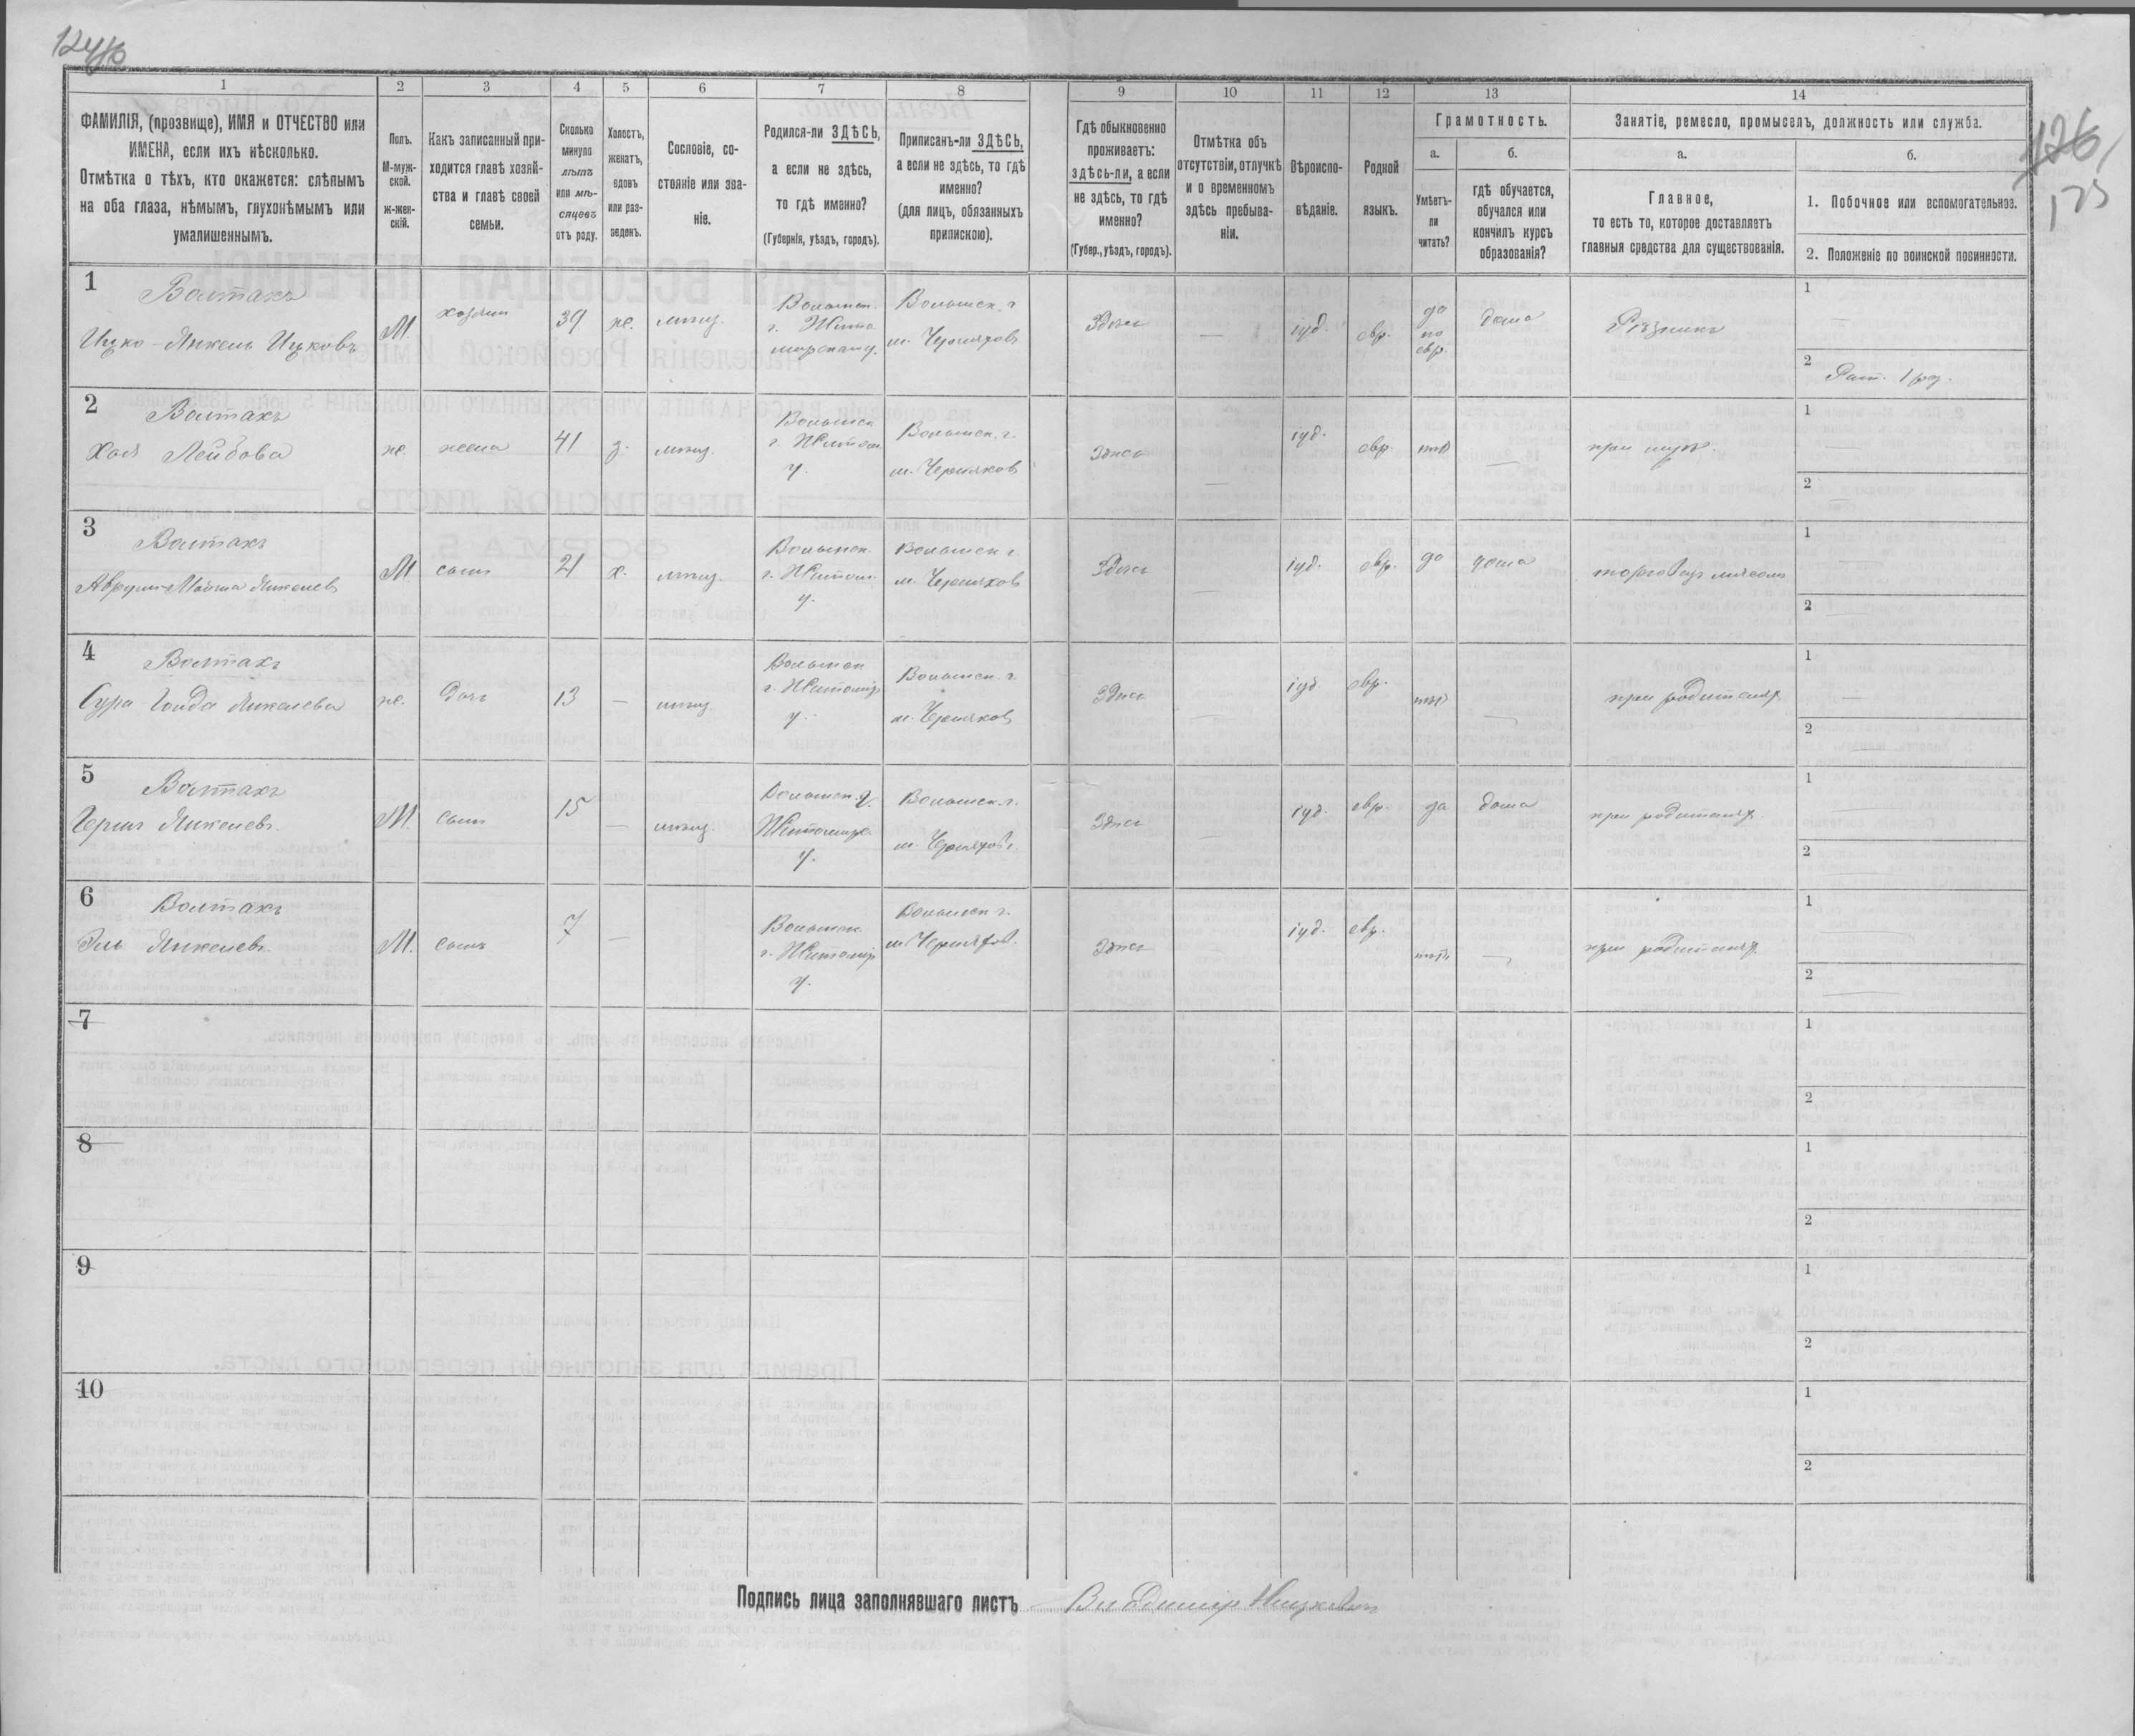 1 2 3 4 5 6 7 8 9 10 11 12 13 14
ФАМИЛІЯ, (прозвище), ИМЯ и ОТЧЕСТВО или
ИМЕНА, если ихъ нѣсколько.
Отмѣтка о тѣхъ, кто окажется: слѣпымъ
на оба глаза, нѣмымъ, глухонѣмымъ или
умалишеннымъ.
Полъ.
М-муж-
ской.
ж-жен-
скій.
Какъ записанный при-
ходится главѣ хозяй-
ства и главѣ своей
семьи.
Сколько
минуло
лѣтъ
или мѣ-
сяцевъ
отъ роду.
Холостъ,
женатъ,
вдовъ
или раз-
веденъ.
Сословіе, со-
стояніе или зва-
ніе.
Родился-ли ЗДѢСЬ,
а если не здѣсь,
то гдѣ именно?
(Губернія, уѣздъ, городъ).
Приписанъ-ли ЗДѢСЬ,
а если не здѣсь, то гдѣ
именно?
(для лицъ, обязанныхъ
припискою).
Гдѣ обыкновенно
проживаетъ:
здѣсь-ли, а если
не здѣсь, то гдѣ
именно?
(Губер., уѣздъ, городъ).
Отмѣтка объ
отсутствіи, отлучкѣ
и о временномъ
здѣсь пребыва-
ніи.
Вѣроиспо-
вѣданіе.
Родной
языкъ.
Грамотность.
а.
Умѣетъ-
ли
читать?
б.
гдѣ обучается,
обучался или
кончилъ курсъ
образованія?
Занятіе, ремесло, промыселъ, должность или служба.
а.
Главное,
то есть то, которое доставляетъ
главныя средства для существованія.
б.
1. Побочное или вспомогательное.
2. Положеніе по воинской повинности.
1
Волтахъ
Ицко-Янкель Ицковъ
М.
хозяин
39
же.
мѣщ.
Волынск.
г. Жито
Волынск. г
м. Черняхов
Здѣсь
іуд.
евр.
да
по
евр.
дома
Рѣзникъ
1
2
Рат. 1 раз.
2
Волтахъ
Хая Лейбова
же.
жена
41
з.
мѣщ.
Волынск
г. Житом
у.
Волынск. г.
м. Черняхов
Здѣсь
іуд.
евр.
нѣтъ
при муж.
1
2
3
Волтахъ
Аврум-Мойша Янкелев
М
сынъ
21
х.
мѣщ.
Волынск.
г. Житом.
у.
Волынск г.
м. Черняхов
Здѣсь
іуд.
евр.
да
дома
торговец мясом
1
2
4
Волтахъ
Сура-Гольда Янкелева
же.
дочь
13
мѣщ
Волынск
г. Житомір
у.
Волынск. г.
м. Черняхов
Здѣсь
іуд.
евр.
нѣтъ
при родителях
1
2
5
Волтахъ
Герш Янкелевъ.
М.
сынъ
15
мѣщ.
Волынск. г.
Житомир
у.
Волынск. г.
м. Черняхов.
Здѣсь
іуд.
евр.
да
дома
при родителях.
1
2
6
Волтахъ
Эль Янкелевъ.
М.
сынъ
7
Волынск.
г. Житомір
у.
Волынск г.
м. Черняхов.
Здѣсь
іуд.
евр.
нѣтъ
при родителях.
1
2
7
1
2
8
1
2
9
1
2
10
1
2
Подпись лица заполнявшаго листъ